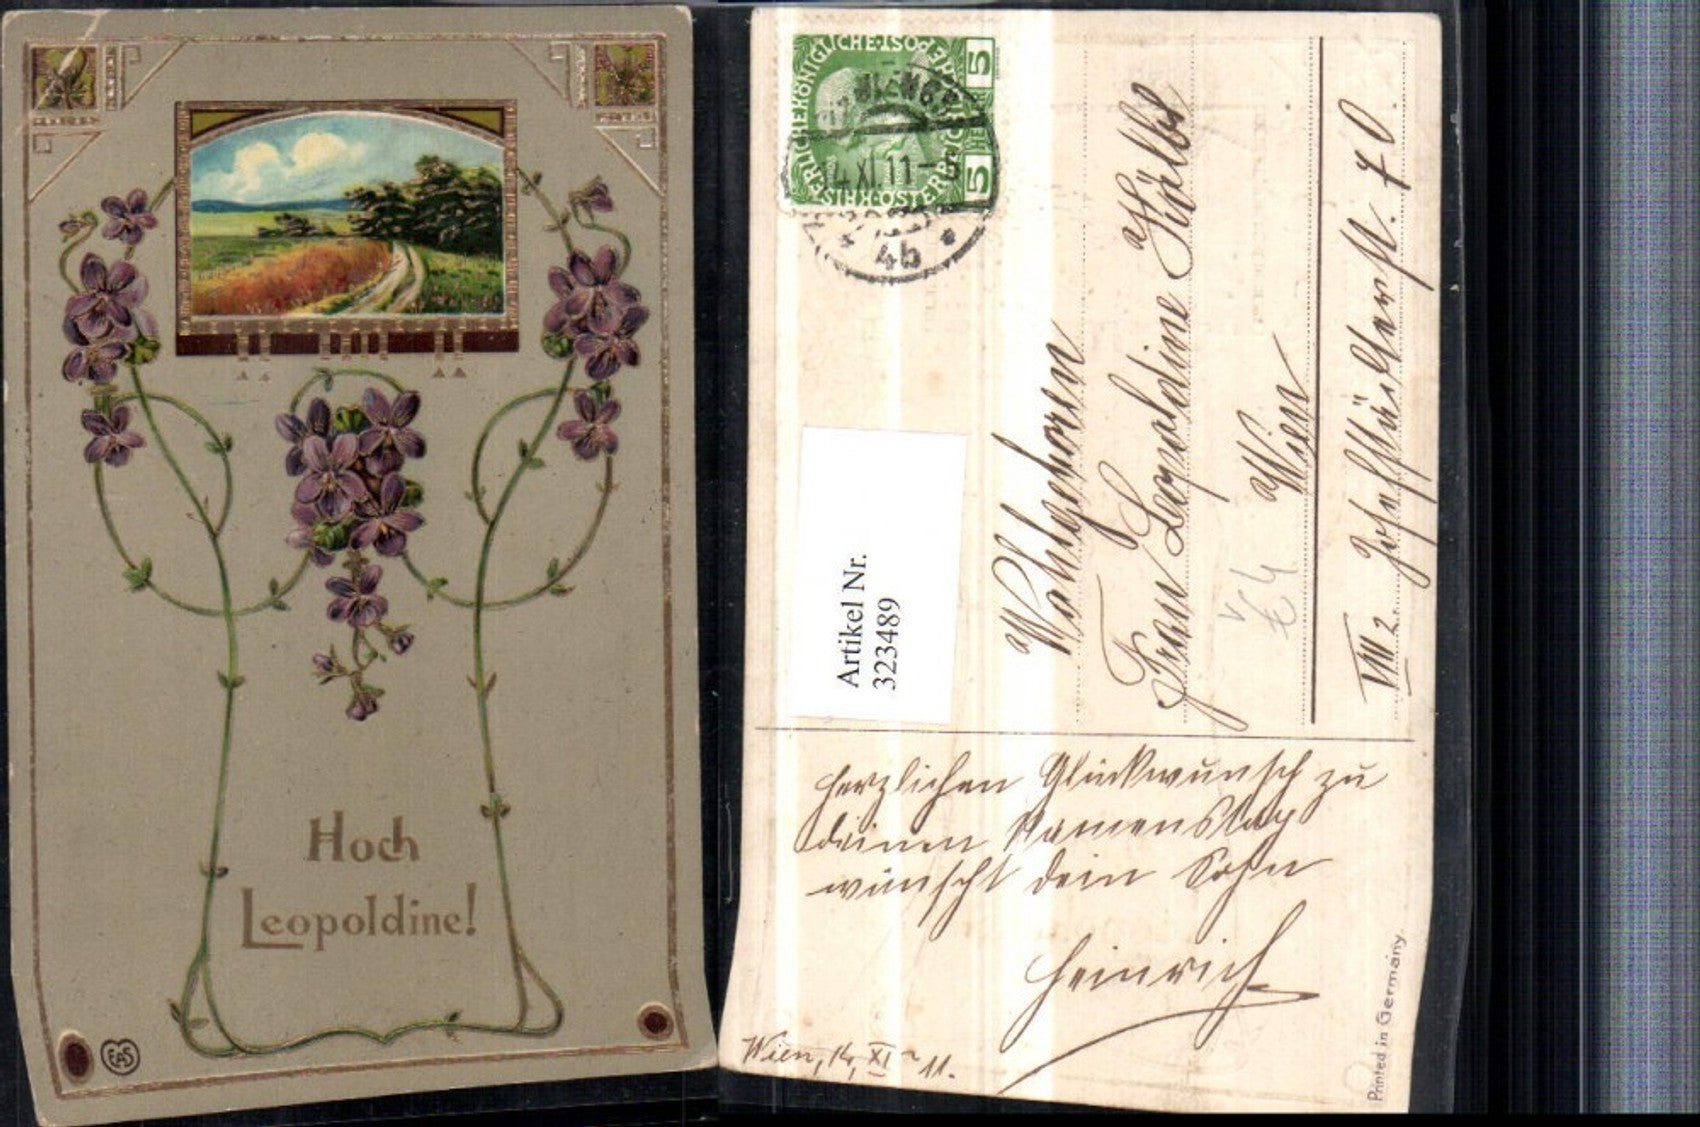 Hoch
Leopoldine!
EAS
KAISERLICHE KÖNIGLICHE ÖSTERREICHISCHE POST
5
5
14 XI.11
4b
Artikel Nr.
323489
Wohlgeboren
Frau Leopoldine Kölbl
Wien
VIII 2.
70
€4
Herzlichen Glückwunsch zu
deinen Namenstag
wünscht dein Sohn
Heinrich
Wien, 14, XI 11.
Printed in Germany.